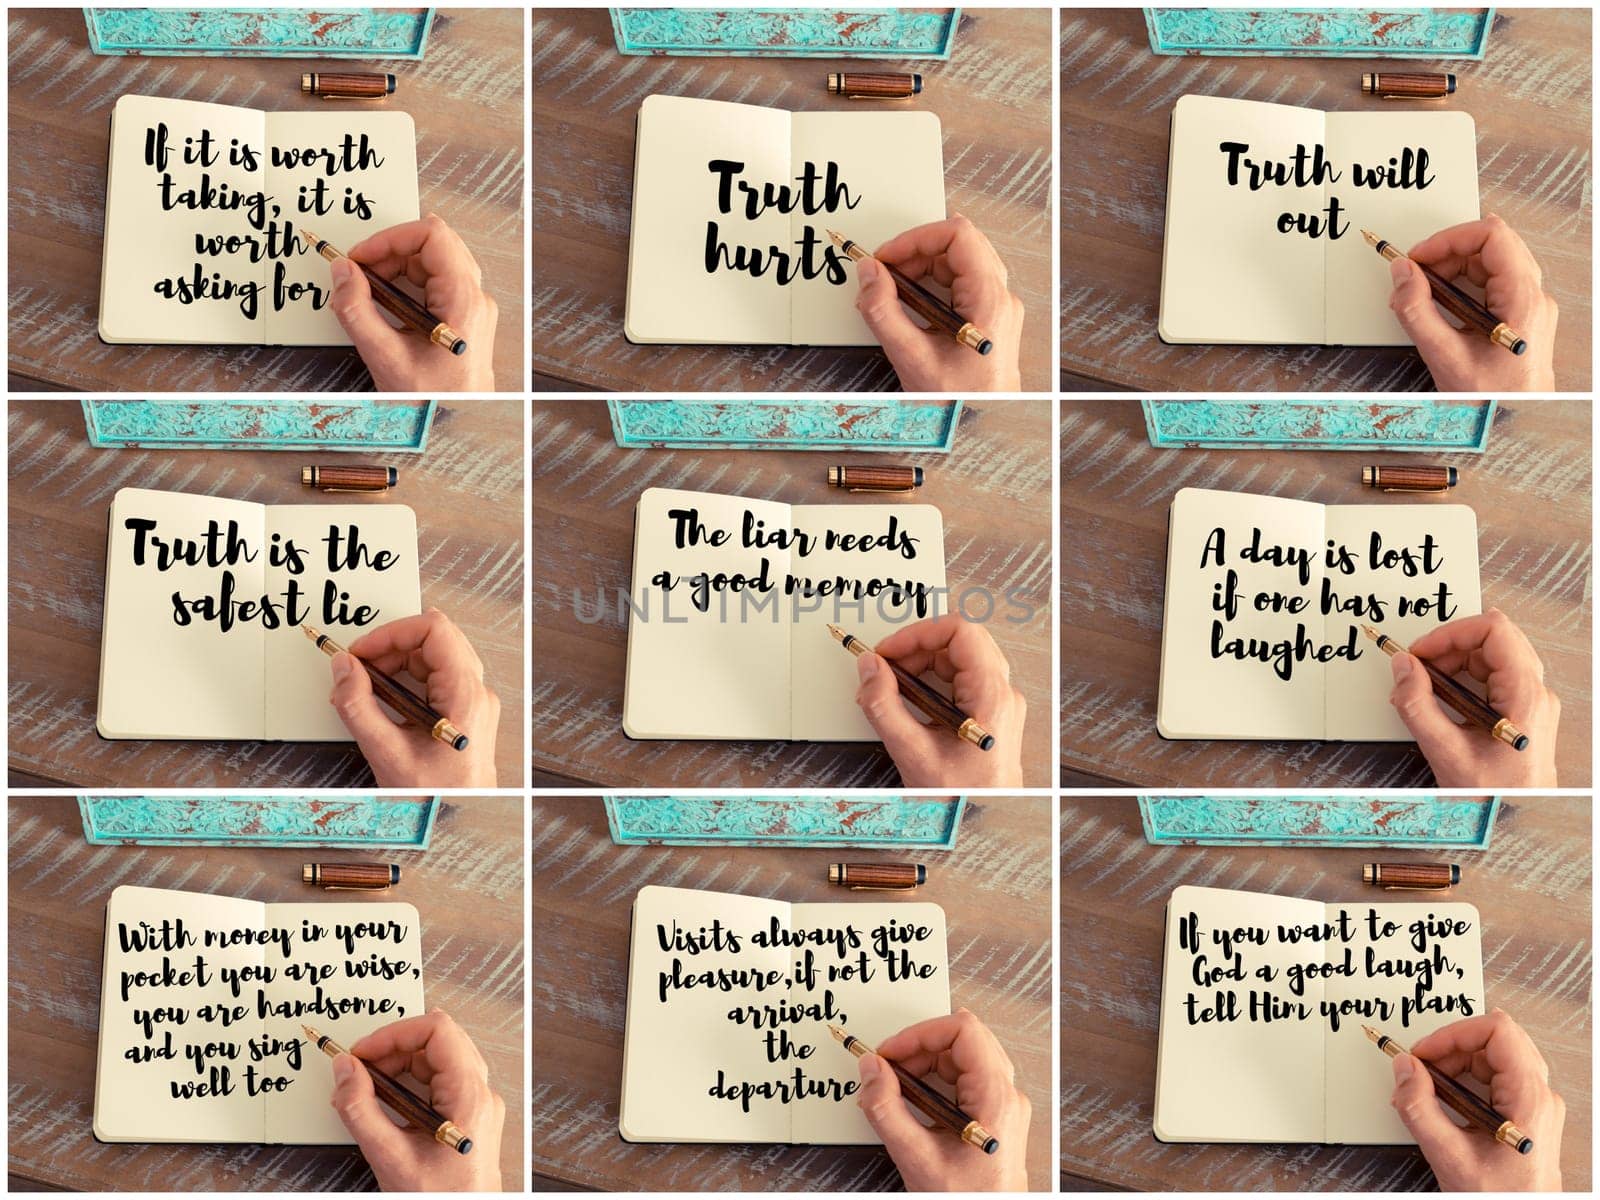 If it is worth
taking, it is
worth
asking for
Truth
hurts
Truth will
out
Truth is the
safest lie
The liar needs
a good memory
A day is lost
if one has not
laughed
With money in your
pocket you are wise,
you are handsome,
and you sing
well too
Visits always give
pleasure,if not the
arrival,
the
departure
If you want to give
God a good laugh,
tell Him your plans
UNLTIMPHOTOS